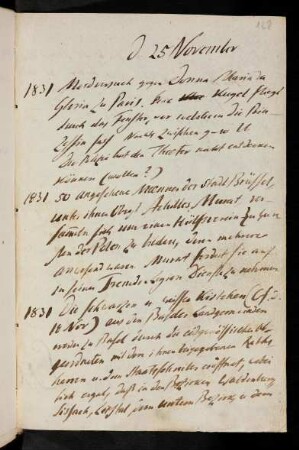 D 25 November
1831 Mordversuch gegen Donna Maria da
Gloria zu Paris. Eine Kugel fliegt
durch das Fenster, vor welchem die Prin-
zessin saß Nachts zwischen 9-10 U.
Die Polizei hat den Thäter nicht entdecken
können (wollen?)
1831 50 angesehene Maenner der Stadt Brüssel,
unter ihnen Achilles Murat ver-
sammeln sich um einen Hülfsverein zu Gun-
sten der Polen zu bilden, denn mehrere
anwesend waren Murat fordert sie auf
in seiner Fremden Legion Dienste zu nehmen
1831 Die schwarzen u. weissen Kästchen (Cf. d.
18 Nov) aus den Basler Landgemeinden
werden zu Basel durch die eidgenössischen Ab-
geordneten mit den ihnen beigegebenen Raths-
herren u. dem Staatsschreiber eröffnet, wobei
sich ergab, daß in den Bezirken Waldenburg
Sissach, Liestal, dem untern Bezirk u. dem